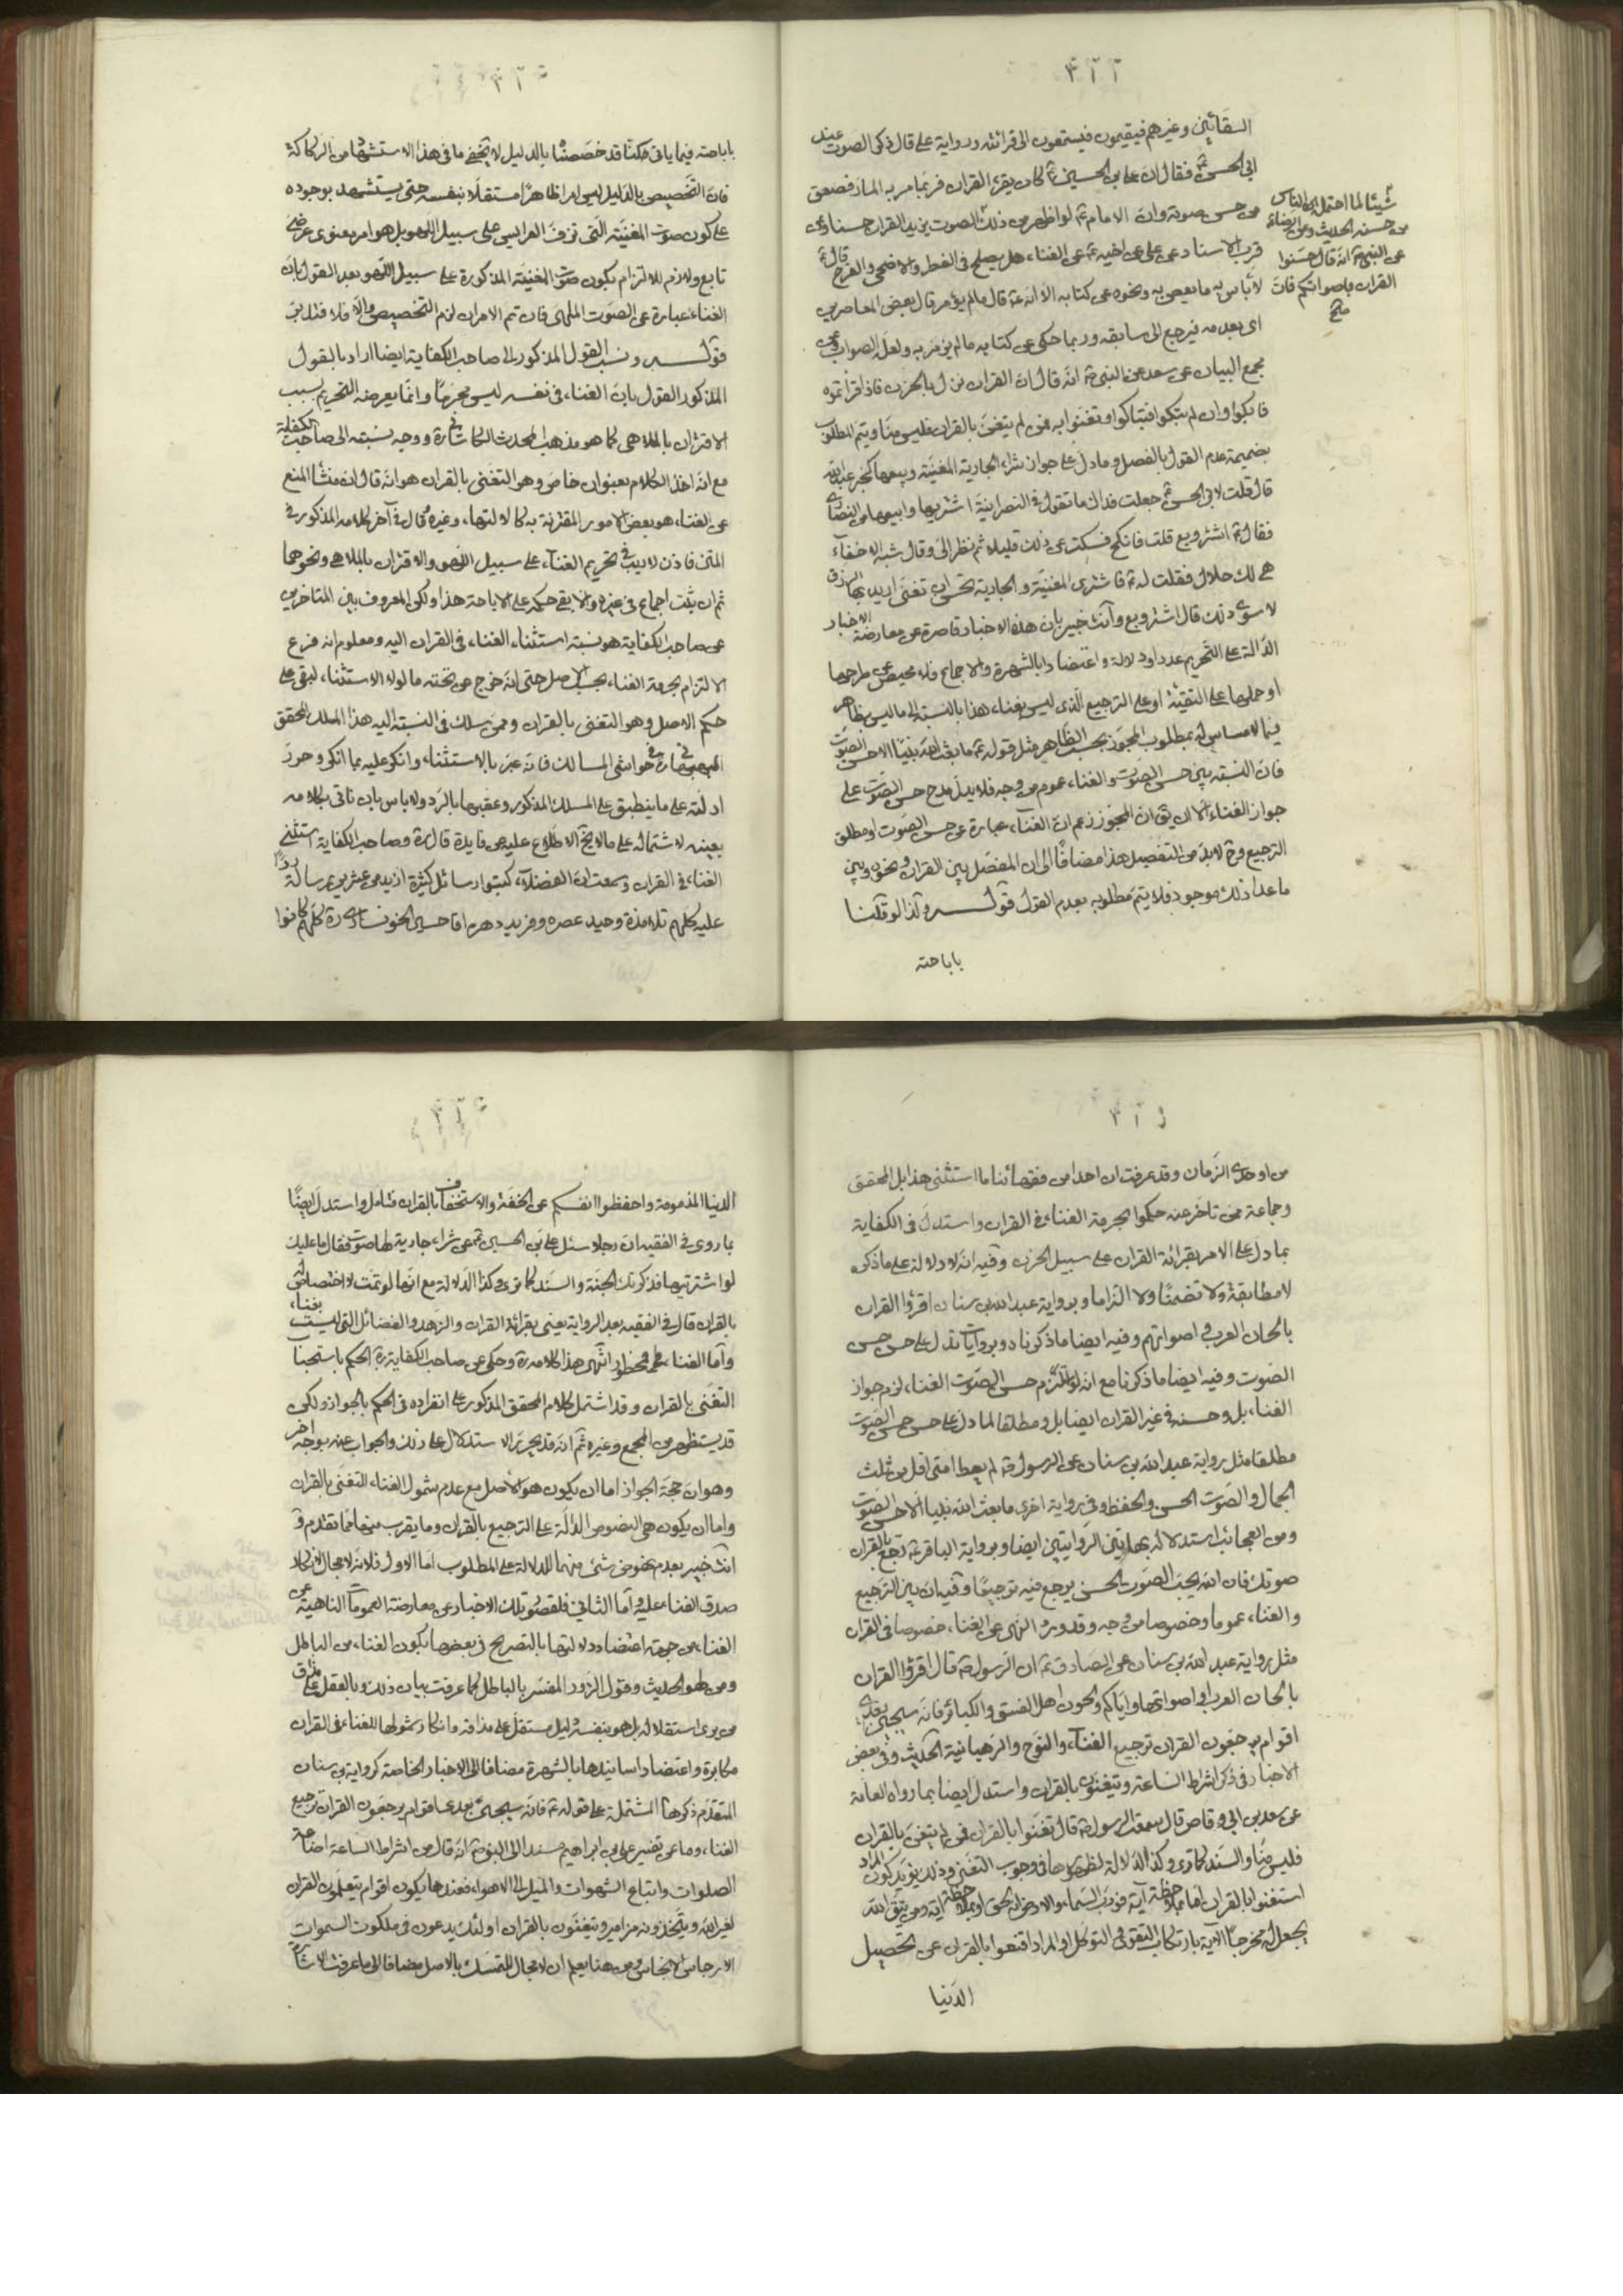 ٣٢٢
السقائين وغيرهم فيقيمون فيستمعون الى قرائته ورواية على قال ذكر الصوت عند
ابى الحسن ع فقال ان على بن الحسين ع كان يقرء القران فربما مر به المار فصعق
من حسن صوته وان الامام ع لو اظهر من ذلك الصوت يزيد القرار حسنا وعن
قرب الاسناد عن على عن اخيه ع عن الغناء هل يصلح فى الفطر والاضحى والفرح قال ع
لا بأس به ما لم يعص به ونحوه عن كتابه الا انه ع قال ما لم يؤمر قال بعض المعاصرين
اى بعده فيرجع الى سابقه وربما حكى عن كتابه ما لم يزمر به ولعله الصواب وعن
مجمع البيان عن سعد عن النبى ص انه قال ان القران نزل بالحزن فاذا قرأتموه
فابكوا وان لم تبكوا فتباكوا وتغنوا به فمن لم يتغن بالقران فليس منا ويتم المطلوب
بضميمة عدم القول بالفصل وما دل على جواز شراء الجارية المغنية وبيعها كخبر عبد الله
قال قلت لابى الحسن ع جعلت فداك ما تقول فى النصرانية اشتريها وابيعها من النصارى
فقال ع اشتر وبع قلت فانكح فسكت عن ذلك قليلا ثم نظر الى وقال شبه الاخفاء
هى لك حلال فقلت له ع فاشترى المغنية والجارية تحسن ان تغنى اريد بها الرزق
لا سوى ذلك قال اشتر وبع وأنت خبير بان هذه الاخبار قاصرة عن معارضة الاخبار
الدالة على التحريم عددا ودلالة واعتضادا بالشهرة والاجماع فلا محيص عن طرحها
او حملها على التقية او على الترجيع الذى ليس بغناء هذا بالنسبة الى ما ليس بظاهر
فيما لا مساس له بمطلوب المجوز بحسب الظاهر مثل قوله ع ما بعث الله نبيا الا حسن الصوت
فان النسبة بين حسن الصوت والغناء عموم من وجه فلا يدل مدح حسن الصوت على
جواز الغناء الا ان يق ان المجوز زعم ان الغناء عبارة عن حسن الصوت او مطلق
الترجيع وح لا بد من التفصيل هذا مضافا الى ان المفصل بين القران ونحوه وبين
ما عدا ذلك موجود فلا يتم مطلوبه بعدم القول قوله ولذا لو قلنا
باباحته
شيئا لما احتمله الناس
من حسنه الحديث وعن الرضاء ع
عن النبى ص انه قال حسنوا
القران باصواتكم فان
صح
٣٢٣
باباحته فيما ياتى امكننا قد خصصنا بالدليل لا يخفى ما فى هذا الاستشهاد من الركاكة
فان التخصيص بالدليل ليس امرا ظاهرا مستقلا بنفسه حتى يستشهد بوجوده
على كون صوت المغنية التى تزف العرايس على سبيل اللهو بل هو امر معنوى عرضى
تابع ولازم للالتزام بكون صوت المغنية المذكورة على سبيل اللهو بعد القول بان
الغناء عبارة عن الصوت الملهى فان تم الامران لزم التخصيص والا فلا فتدبر
قوله ونسب القول المذكور الى صاحب الكفاية ايضا اراد بالقول
المذكور القول بان الغناء فى نفسه ليس محرما وانما يعرضه التحريم بسبب
الاقتران بالملاهى كما هو مذهب المحدث الكاشانى ره ووجه نسبته الى صاحب الكفاية
مع انه اخذ الكلام بعنوان خاص وهو التغنى بالقران هو انه قال ان منشأ المنع
عن الغناء هو بعض الامور المقترنة به كالالتهاء وغيره وقال فى آخر كلامه المذكور فى
المتن فاذن لا ريب فى تحريم الغناء على سبيل اللهو والاقتران بالملاهى ونحوهما
ثم ان ثبت اجماع فى غيره والا بقى حكمه على الاباحة هذا ولكن المعروف بين المتاخرين
عن صاحب الكفاية هو نسبة استثناء الغناء فى القران اليه ومعلوم انه فرع
الالتزام بحرمة الغناء بحسب الاصل حتى انه خرج من تحته ما لولا الاستثناء لبقى على
حكم الاصل وهو التغنى بالقران وممن سلك فى النسبة اليه هذا المسلك المحقق
فى حواشى المسالك فانه عبر بالاستثناء وانكر عليه بما انكر وحرر
ادلته على ما ينطبق على المسلك المذكور وعقبها بالرد ولا باس بان ناتى بكلامه
بعينه لاشتماله على ما لا يخ الاطلاع عليه من فايدة قال ره وصاحب الكفاية استثنى
الغناء فى القران وسمعت ان الفضلاء كتبوا رسائل كثيرة ازيد من عشرين رسالة ردا
عليه كلهم تلامذة وحيد عصره وفريد دهره اقا حسين الخونسارى ره كلهم كانوا
٣٢٤
من اوحدى الزمان وقد عرفت ان احدا من فقهائنا ما استثنى هذا بل المحقق
وجماعة ممن تاخر عنه حكموا بحرمة الغناء فى القران واستدل فى الكفاية
بما دل على الامر بقرائة القران على سبيل الحزن وفيه انه لا دلالة على ما ذكره
لا مطابقة ولا تضمنا ولا التزاما وبرواية عبد الله بن سنان اقرؤا القران
بالحان العرب فى اصواتهم وفيه ايضا ما ذكرنا وبروايات تدل على حسن حسن
الصوت وفيه ايضا ما ذكرنا مع انه لو التزم حسن الصوت الغناء لزم جواز
الغناء بل وحسنه فى غير القران ايضا بل ومطلقا لما دل على حسن حسن الصوت
مطلقا مثل رواية عبد الله بن سنان عن الرسول ص لم يعط امتى اقل من ثلث
الجمال والصوت الحسن والحفظ وفى رواية اخرى ما بعث الله نبيا الا حسن الصوت
ومن العجائب استدلاله بهاتين الروايتين ايضا وبرواية الباقر ع ترجع بالقران
صوتك فان الله يحب الصوت الحسن يرجع فيه ترجيعا وفيه ان بين الترجيع
والغناء عموما وخصوصا من وجه وقد ورد النهى عن الغناء خصوصا فى القران
مثل رواية عبد الله بن سنان عن الصادق ع ان الرسول ص قال اقرؤا القران
بالحان العرب واصواتها واياكم ولحون اهل الفسق والكبائر فانه سيجىء بعدى
اقوام يرجعون القران ترجيع الغناء والنوح والرهبانية الحديث وفى بعض
الاخبار فى ذكر اشراط الساعة ويتغنون بالقران واستدل ايضا بما رواه العامة
عن سعد بن ابى وقاص قال سمعت الرسول ص قال تغنوا بالقران فمن لم يتغن بالقران
فليس منا والسند كما ترى وكذا الدلالة لظهورها فى وجوب التغنى وذلك يؤيد كون المراد
استغنوا بالقران اما بملاحظة آية فورب السماء والارض انه لحق او بملاحظة اية ومن يتق الله
يجعل له مخرجا الاية بارتكاب التقوى التوكل او المراد اقنعوا بالقران عن تحصيل
الدنيا
٣٢٥
الدنيا المذمومة واحفظوا انفسكم عن الخفة والاستخفاف بالقران فتامل واستدل ايضا
بما روى فى الفقيه ان رجلا سئل على بن الحسين ع عن شراء جارية لها صوت فقال ما عليك
لو اشتريتها فذكرتك الجنة والسند كما ترى وكذا الدلالة مع انها لو تمت لا اختصاص له
بالقران قال فى الفقيه بعد الرواية يعنى بقرائة القران والزهد والفضائل التى ليست بغناء
واما الغناء فمحظور انتهى هذا كلامه ره وحكى عن صاحب الكفاية ره الحكم باستحباب
التغنى بالقران وقد اشتمل كلام المحقق المذكور على انفراده فى الحكم بالجواز ولكن
قد يستظهر من المجمع وغيره ثم انه قد يحرر الاستدلال على ذلك والجواب عنه بوجه اخر
وهو ان حجة الجواز اما ان يكون هو الاصل مع عدم شمول الغناء التغنى بالقران
واما ان يكون هى النصوص الدالة على الترجيع بالقران وما يقرب منها مما تقدم و
انت خبير بعدم نهوض شئ منهما للدلالة على المطلوب اما الاول فلانه لا مجال لانكار
صدق الغناء عليه واما الثانى فلقصور تلك الاخبار عن معارضة العمومات الناهية عن
الغناء من جهة اعتضاد دلالتها بالتصريح فى بعضها بكون الغناء من الباطل
ومن لهو الحديث وقول الزور المفسر بالباطل كما عرفت بيان ذلك وبالعقل على مذاق
من يرى استقلاله بل هو بنفسه دليل مستقل على مذاقه وانكار شمولها للغناء فى القران
مكابرة واعتضاد اسانيدها بالشهرة مضافا الى الاخبار الخاصة كرواية بن سنان
المتقدم ذكرها المشتملة على قوله ع فانه سيجىء بعدى اقوام يرجعون القران ترجيع
الغناء وما عن تفسير على بن ابراهيم مسندا الى النبى ص انه قال من اشراط الساعة اضاعة
الصلوات واتباع الشهوات والميل الى الاهواء فعندها يكون اقوام يتعلمون القران
لغير الله ويتخذونه مزامير ويتغنون بالقران اولئك يدعون فى ملكوت السموات
الارجاس الانجاس ومن هنا يعلم ان لا مجال للتمسك بالاصل مضافا الى ما عرفت